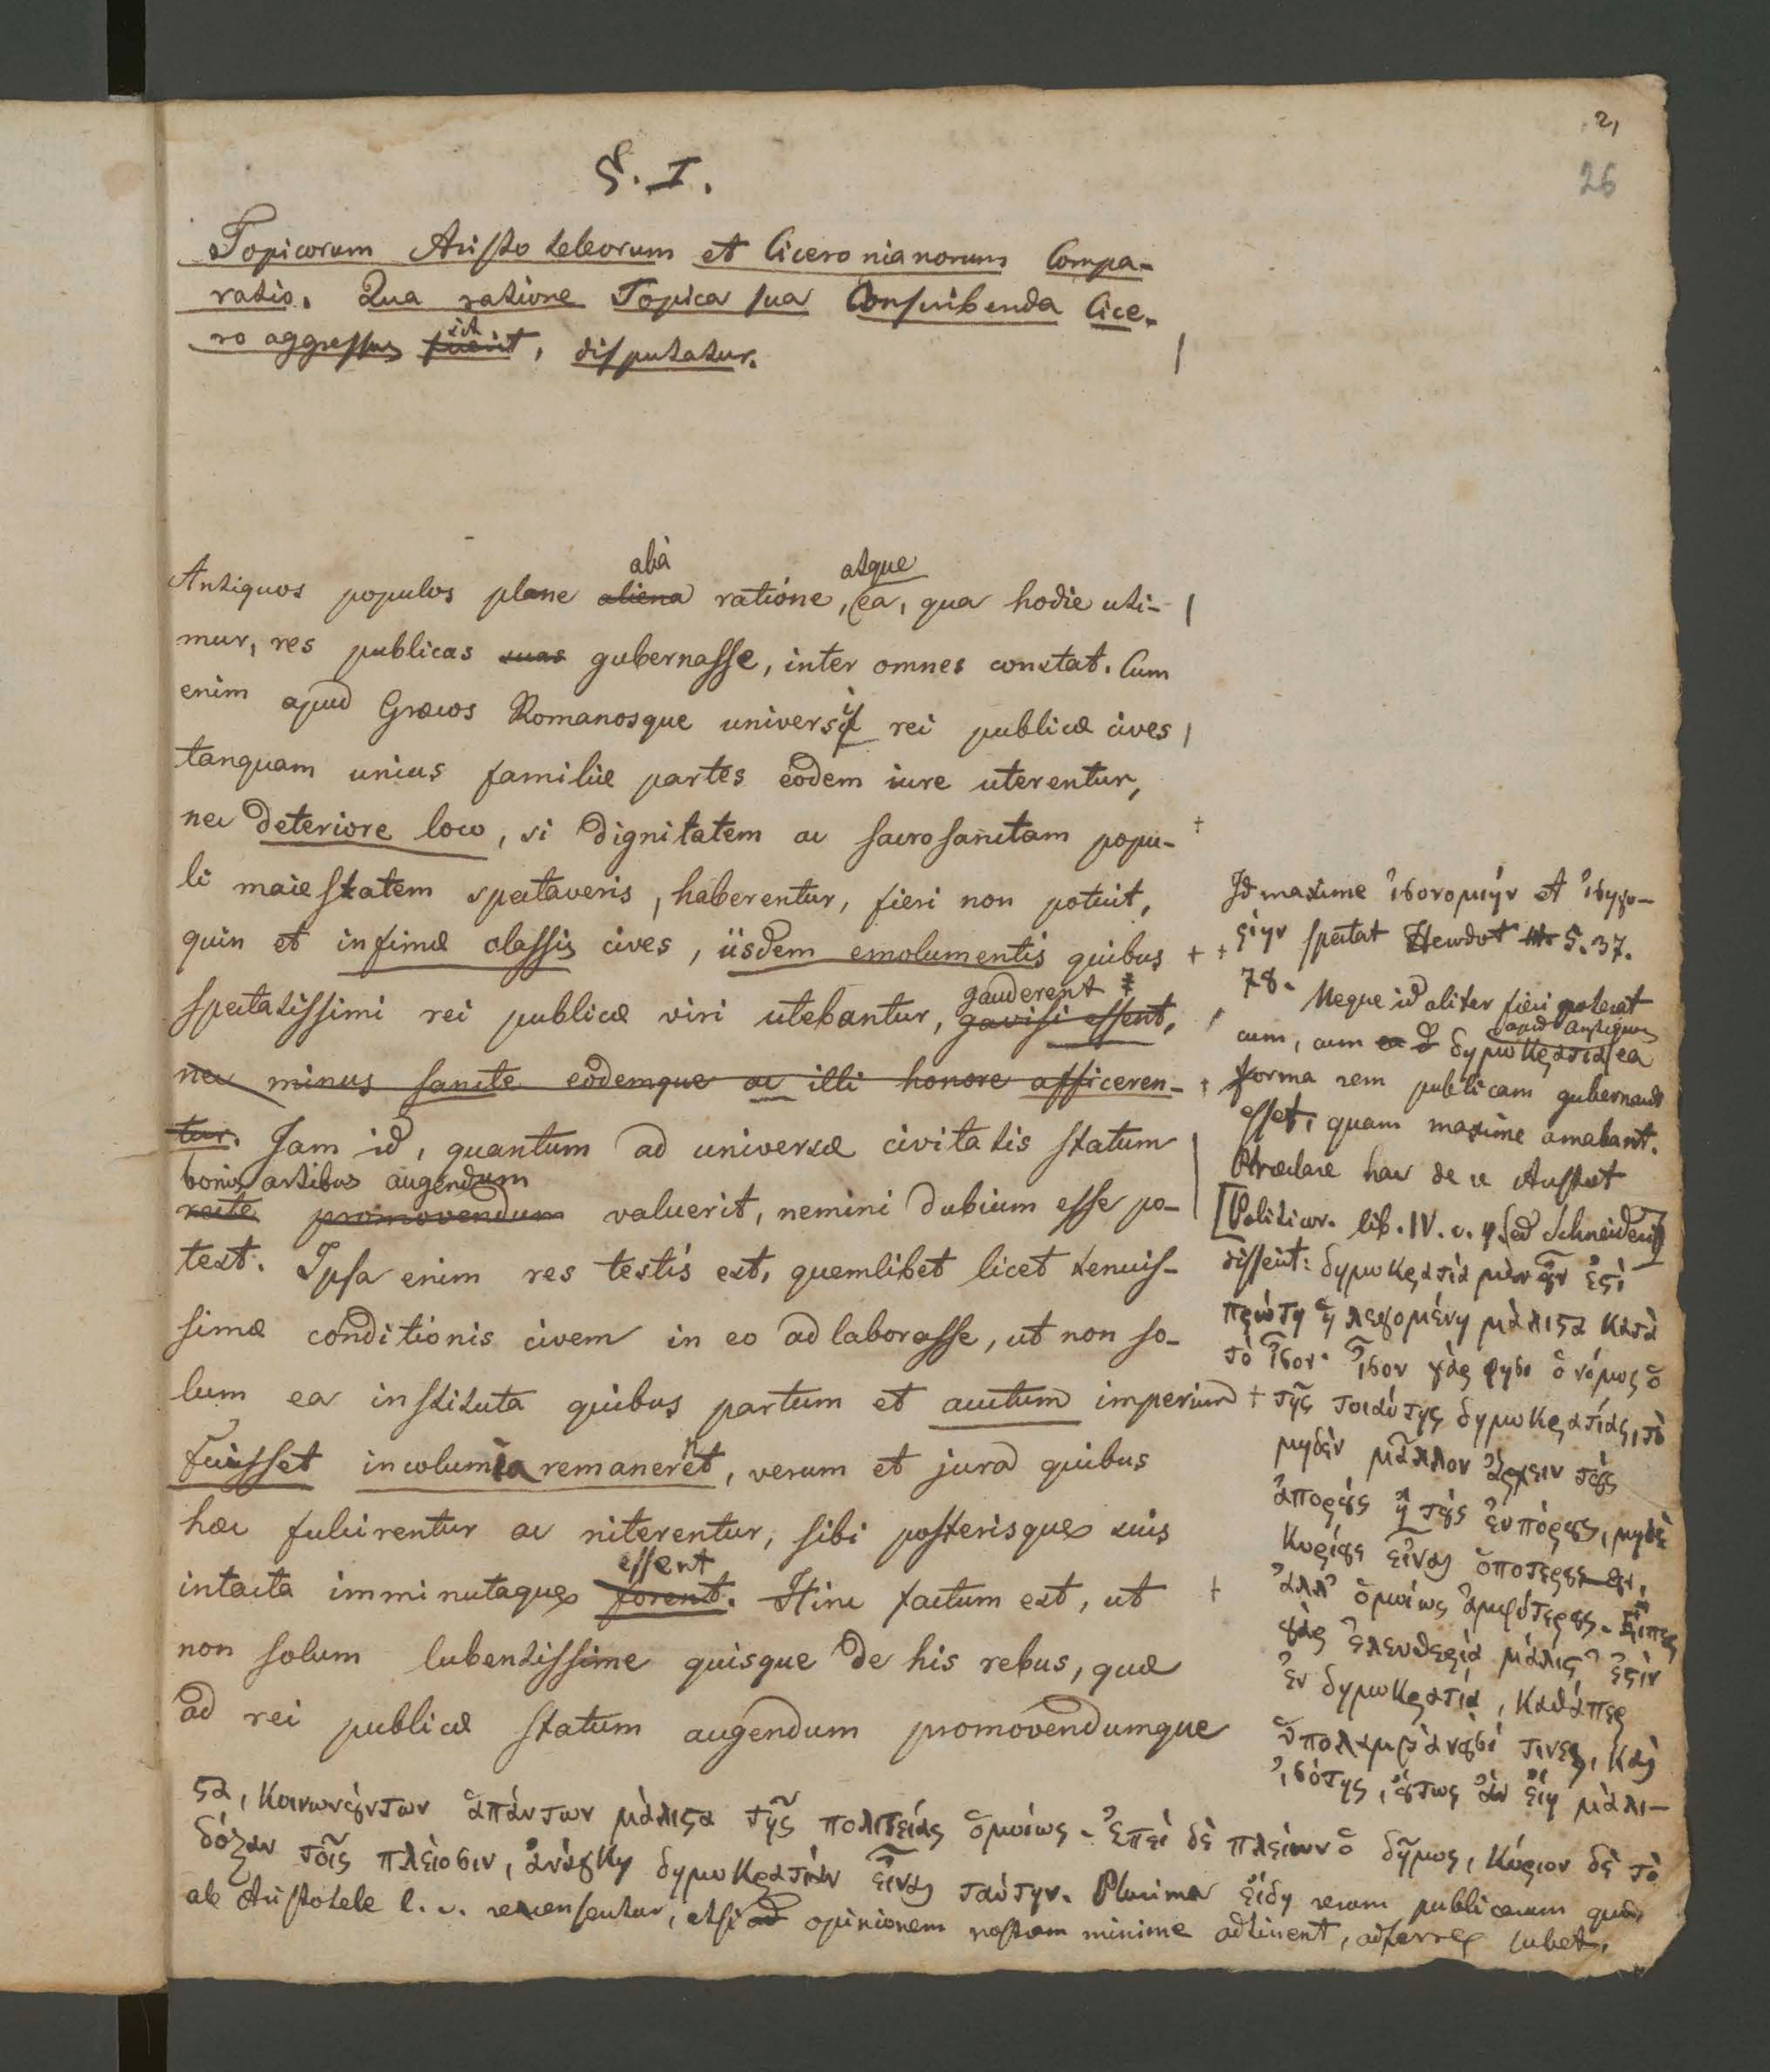 2,
26
§. I.
Topicorum Aristoteleorum et Ciceronianorum Compa-
ratio. Qua ratione Topica sua Conscribenda Cice-
sit
ro aggressus fuerit, disputatur.
aliâ atque
Antiquos populos plane aliena ratione, ea, qua hodie uti-
mur, res publicas suas gubernasse, inter omnes constat. Cum
enim apud Græcos Romanosque universi rei publicæ cives
tanquam unius familiæ partes eodem iure uterentur,
nec deteriore loco, si dignitatem ac sacrosanctam popu-
li maiestatem spectaveris, haberentur, fieri non potuit,
quin et infimæ classis cives, iisdem emolumentis quibus
gauderent
spectatissimi rei publicæ viri utebantur, gavisi essent,
nec minus sancte eodemque ac illi honore afficeren-
tur. Jam id, quantum ad universæ civitatis statum
bonis artibus augendum
recte promovendum valuerit, nemini dubium esse po-
test. Ipsa enim res testis est, quemlibet licet tenuis-
simæ conditionis civem in eo adlaborasse, ut non so-
lum ea instituta quibus partum et auctum imperium
fuisset incolumia remanerent, verum et jura quibus
hæc fulcirentur ac niterentur, sibi posterisque suis
essent
intacta imminutaque forent. Hinc factum est, ut
non solum lubentissime quisque de his rebus, quæ
ad rei publicæ statum augendum promovendumque
Id maxime ἰσονομιήν et ἰσηγο-
ρίην spectat Herodot 5. 37.
78. Neque id aliter fieri poterat
apud antiquos
cum, cum δημωκρατία ea
forma rem publicam gubernandi
esset, quam maxime amabant.
Præclare hac de re Aristot
[Politicor. lib. IV. c. 4. (ed Schneideri)]
disserit: δημωκρατία μὲν ȣ̓͂ν ἐϛὶ
πρώτη ἡ λεγομένη μάλιϛα κατὰ
τὸ ἴσον. ἴσον γάρ φησι ὁ νόμος ὁ
τῆς τοιαύτης δημωκρατίας, τὸ
μηδὲν μᾶλλον ἄρχειν τȣ̀ς
ἀπόρȣς ἢ τȣ̀ς εὐπόρȣς, μηδὲ
κυρίȣς εἶναι ὁποτερȣσȣν,
ἀλλ' ὁμοίως ἀμφότερȣς. Εἴπερ
γὰρ ἐλευθερία μάλιϛ' ἐϛὶν
ἐν δημωκρατίᾳ, καθάπερ
ὑπολαμβάνȣσί τινες, καὶ
ἰσότης, ȣ̔́τως ἂν εἴη μάλι-
ϛα, κοινωνȣ́ντων ἁπάντων μάλιϛα τῆς πολιτείας ὁμοίως. Ἐπεὶ δὲ πλείων ὁ δῆμος, κύριον δὲ τὸ
δόξαν τοῖς πλείοσιν, ἀνάγκη δημωκρατίαν εἶναι ταύτην. Plurima εἴδη rerum publicarum quæ,
ab Aristotele l. c. recensentur, etsi ad opinionem nostram minime adtinent, adferre lubet.